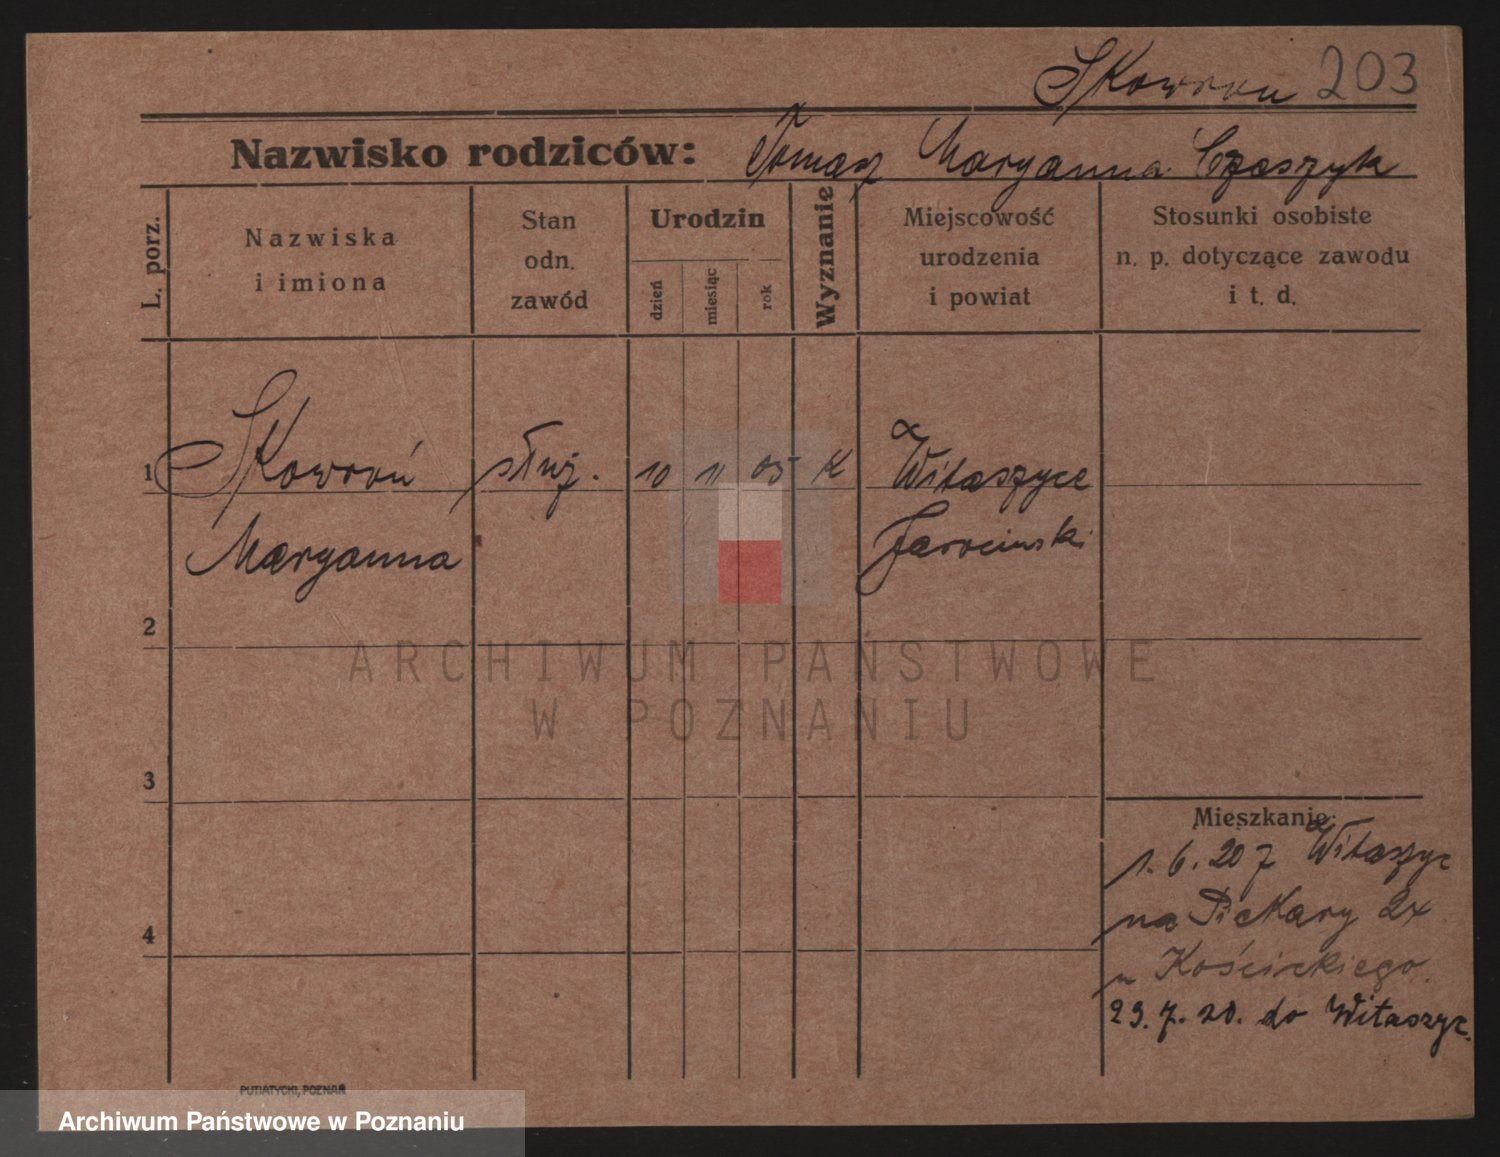 Skowron 203
Nazwisko rodziców: Tomasz Maryanna Czaszyk
L. porz.
Nazwiska
i imiona
Stan
odn.
zawód
Urodzin
dzień
miesiąc
rok
Wyznanie
Miejscowość
urodzenia
i powiat
Stosunki osobiste
n. p. dotyczące zawodu
i t. d.
1 Skowroń służ. 10 11 05 K Witaszyce
Maryanna Jarocinski
2
ARCHIWUM PAŃSTWOWE
W POZNANIU
3
Mieszkanie:
1. 6. 20 z Witaszyc
na Piekary 2x
u Kościckiego
4
29. 7. 20. do Witaszyc.
PUTIATYCKI, POZNAŃ
Archiwum Państwowe w Poznaniu